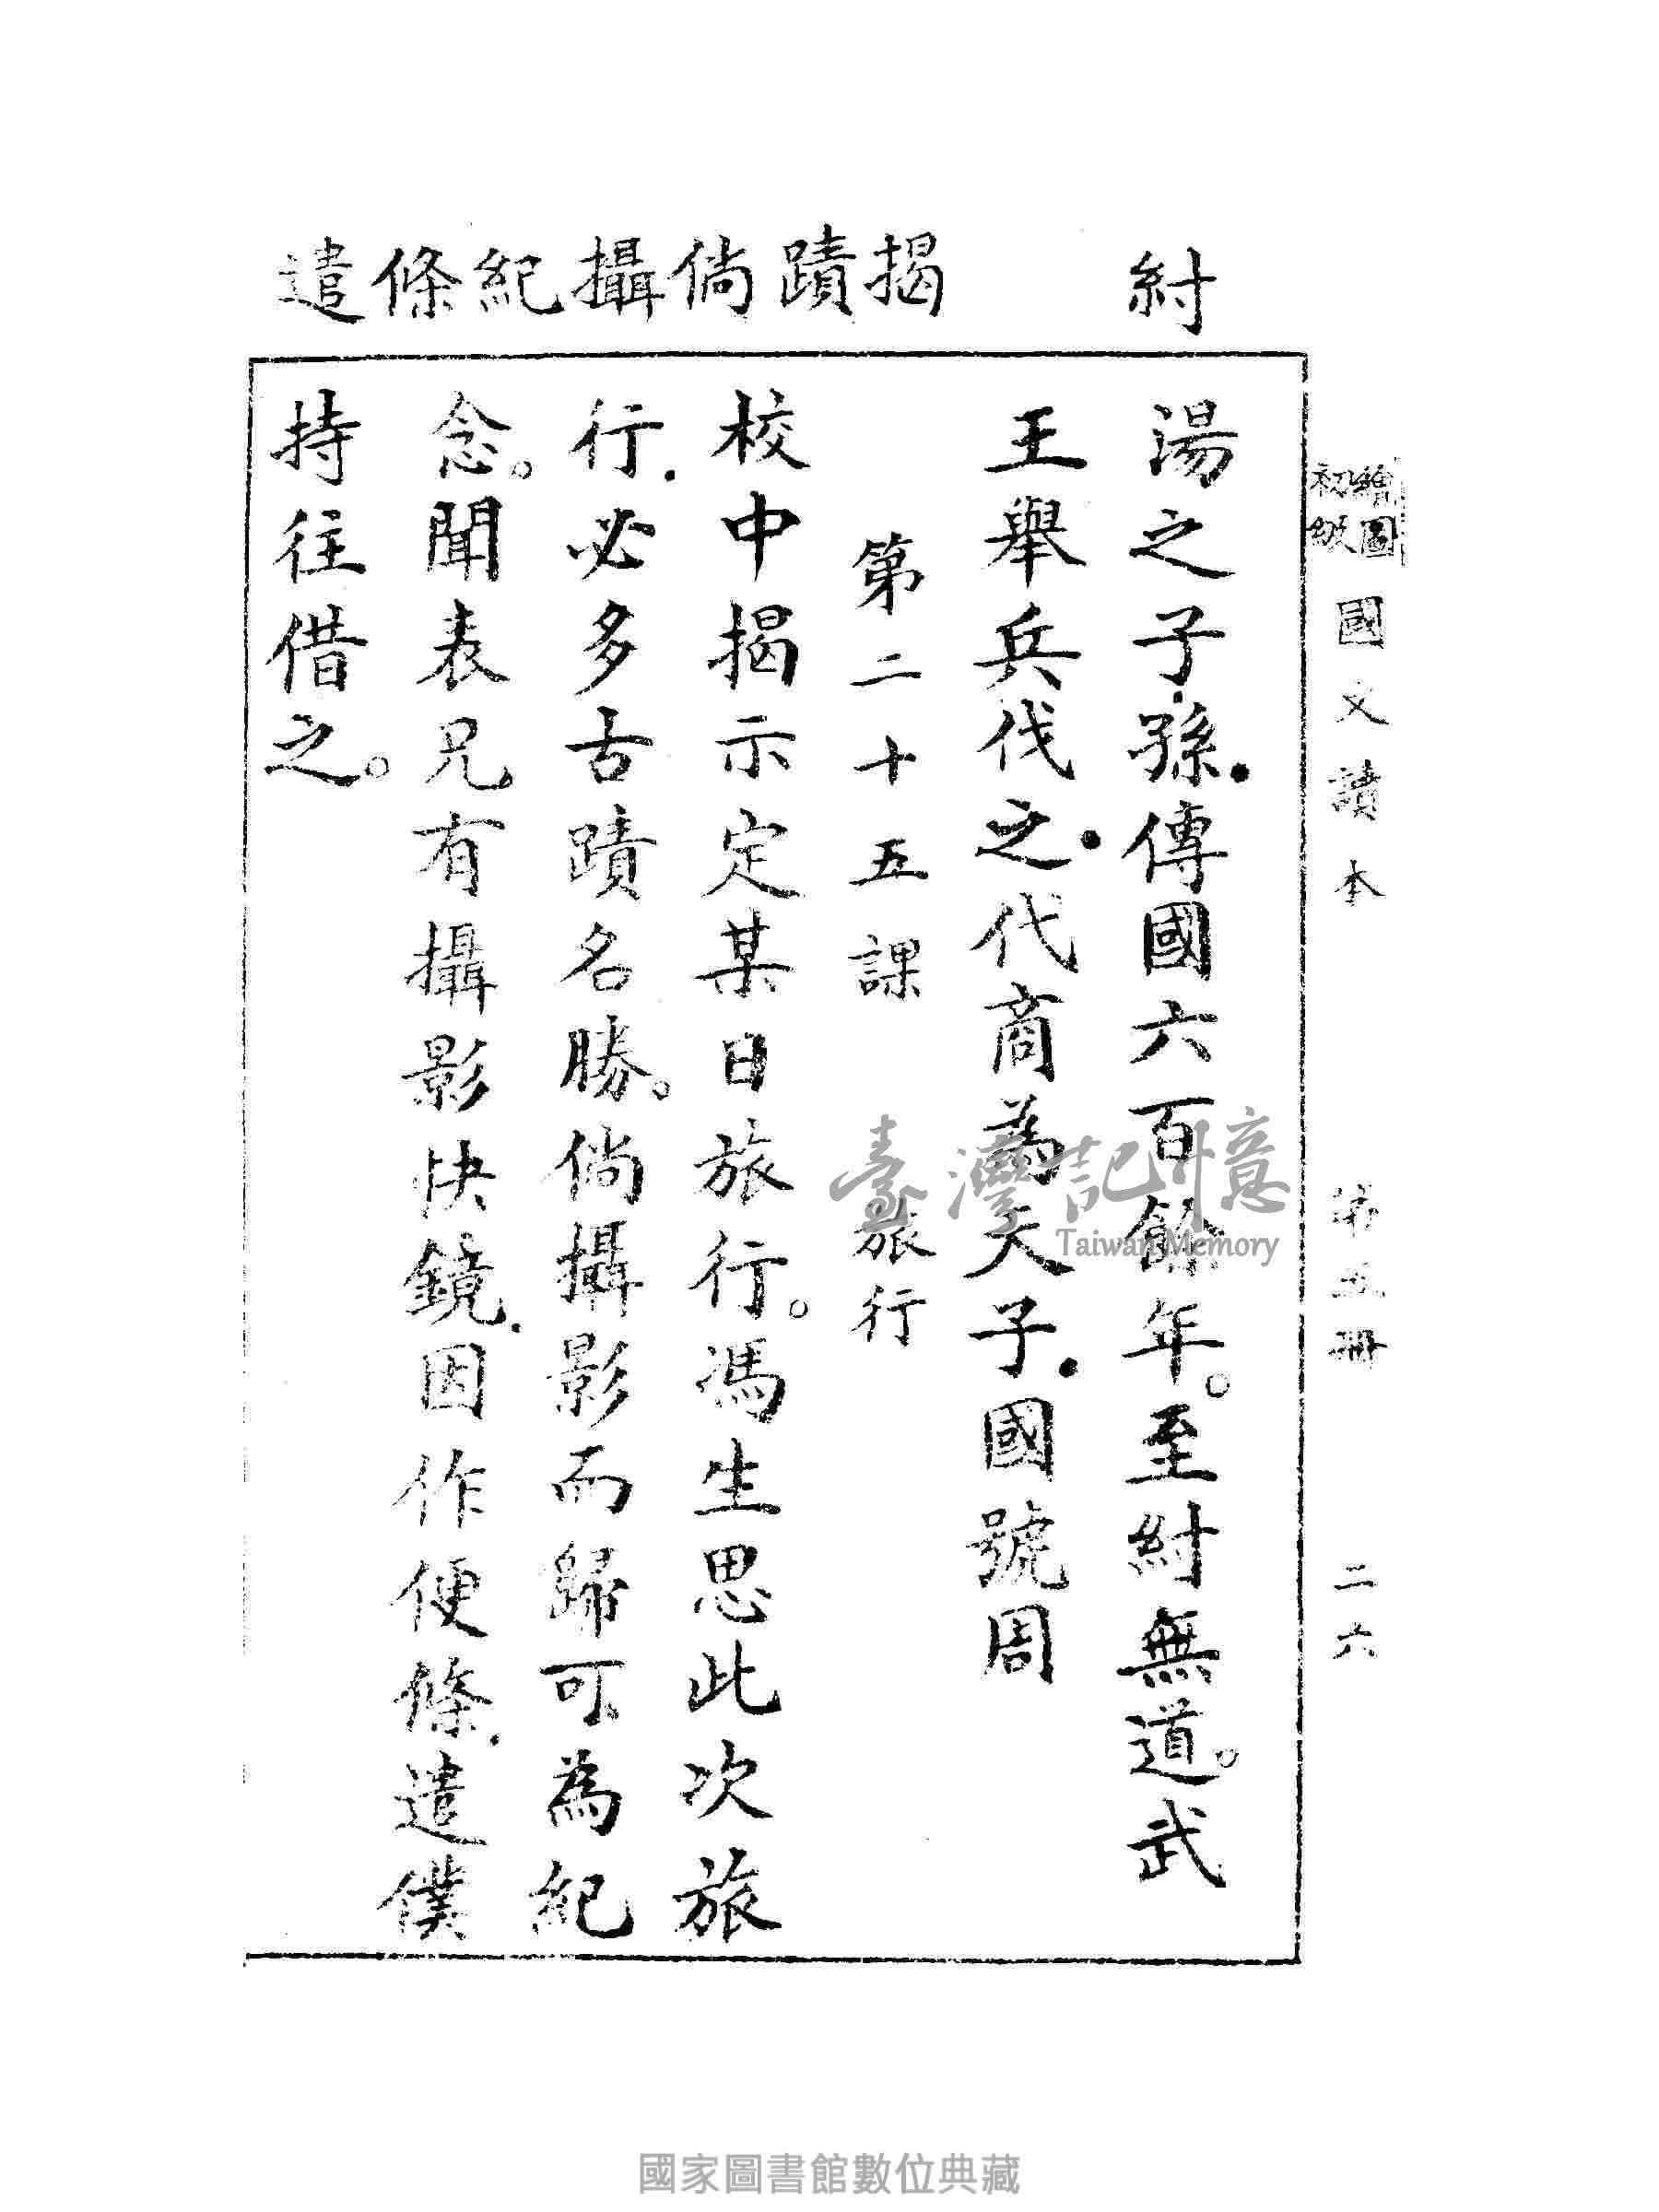 繪圖
初級
國文讀本 第五冊 二六
紂
湯之子孫．傳國六百餘年。至紂無道。武
王舉兵伐之．代商為天子．國號周
第二十五課 旅行
揭蹟倘攝紀條遣
校中揭示定某日旅行。馮生思此次旅
行．必多古蹟名勝。倘攝影而歸可為紀
念。聞表兄有攝影快鏡．因作便條．遣僕
持往借之。
臺灣記憶
Taiwan Memory
國家圖書館數位典藏